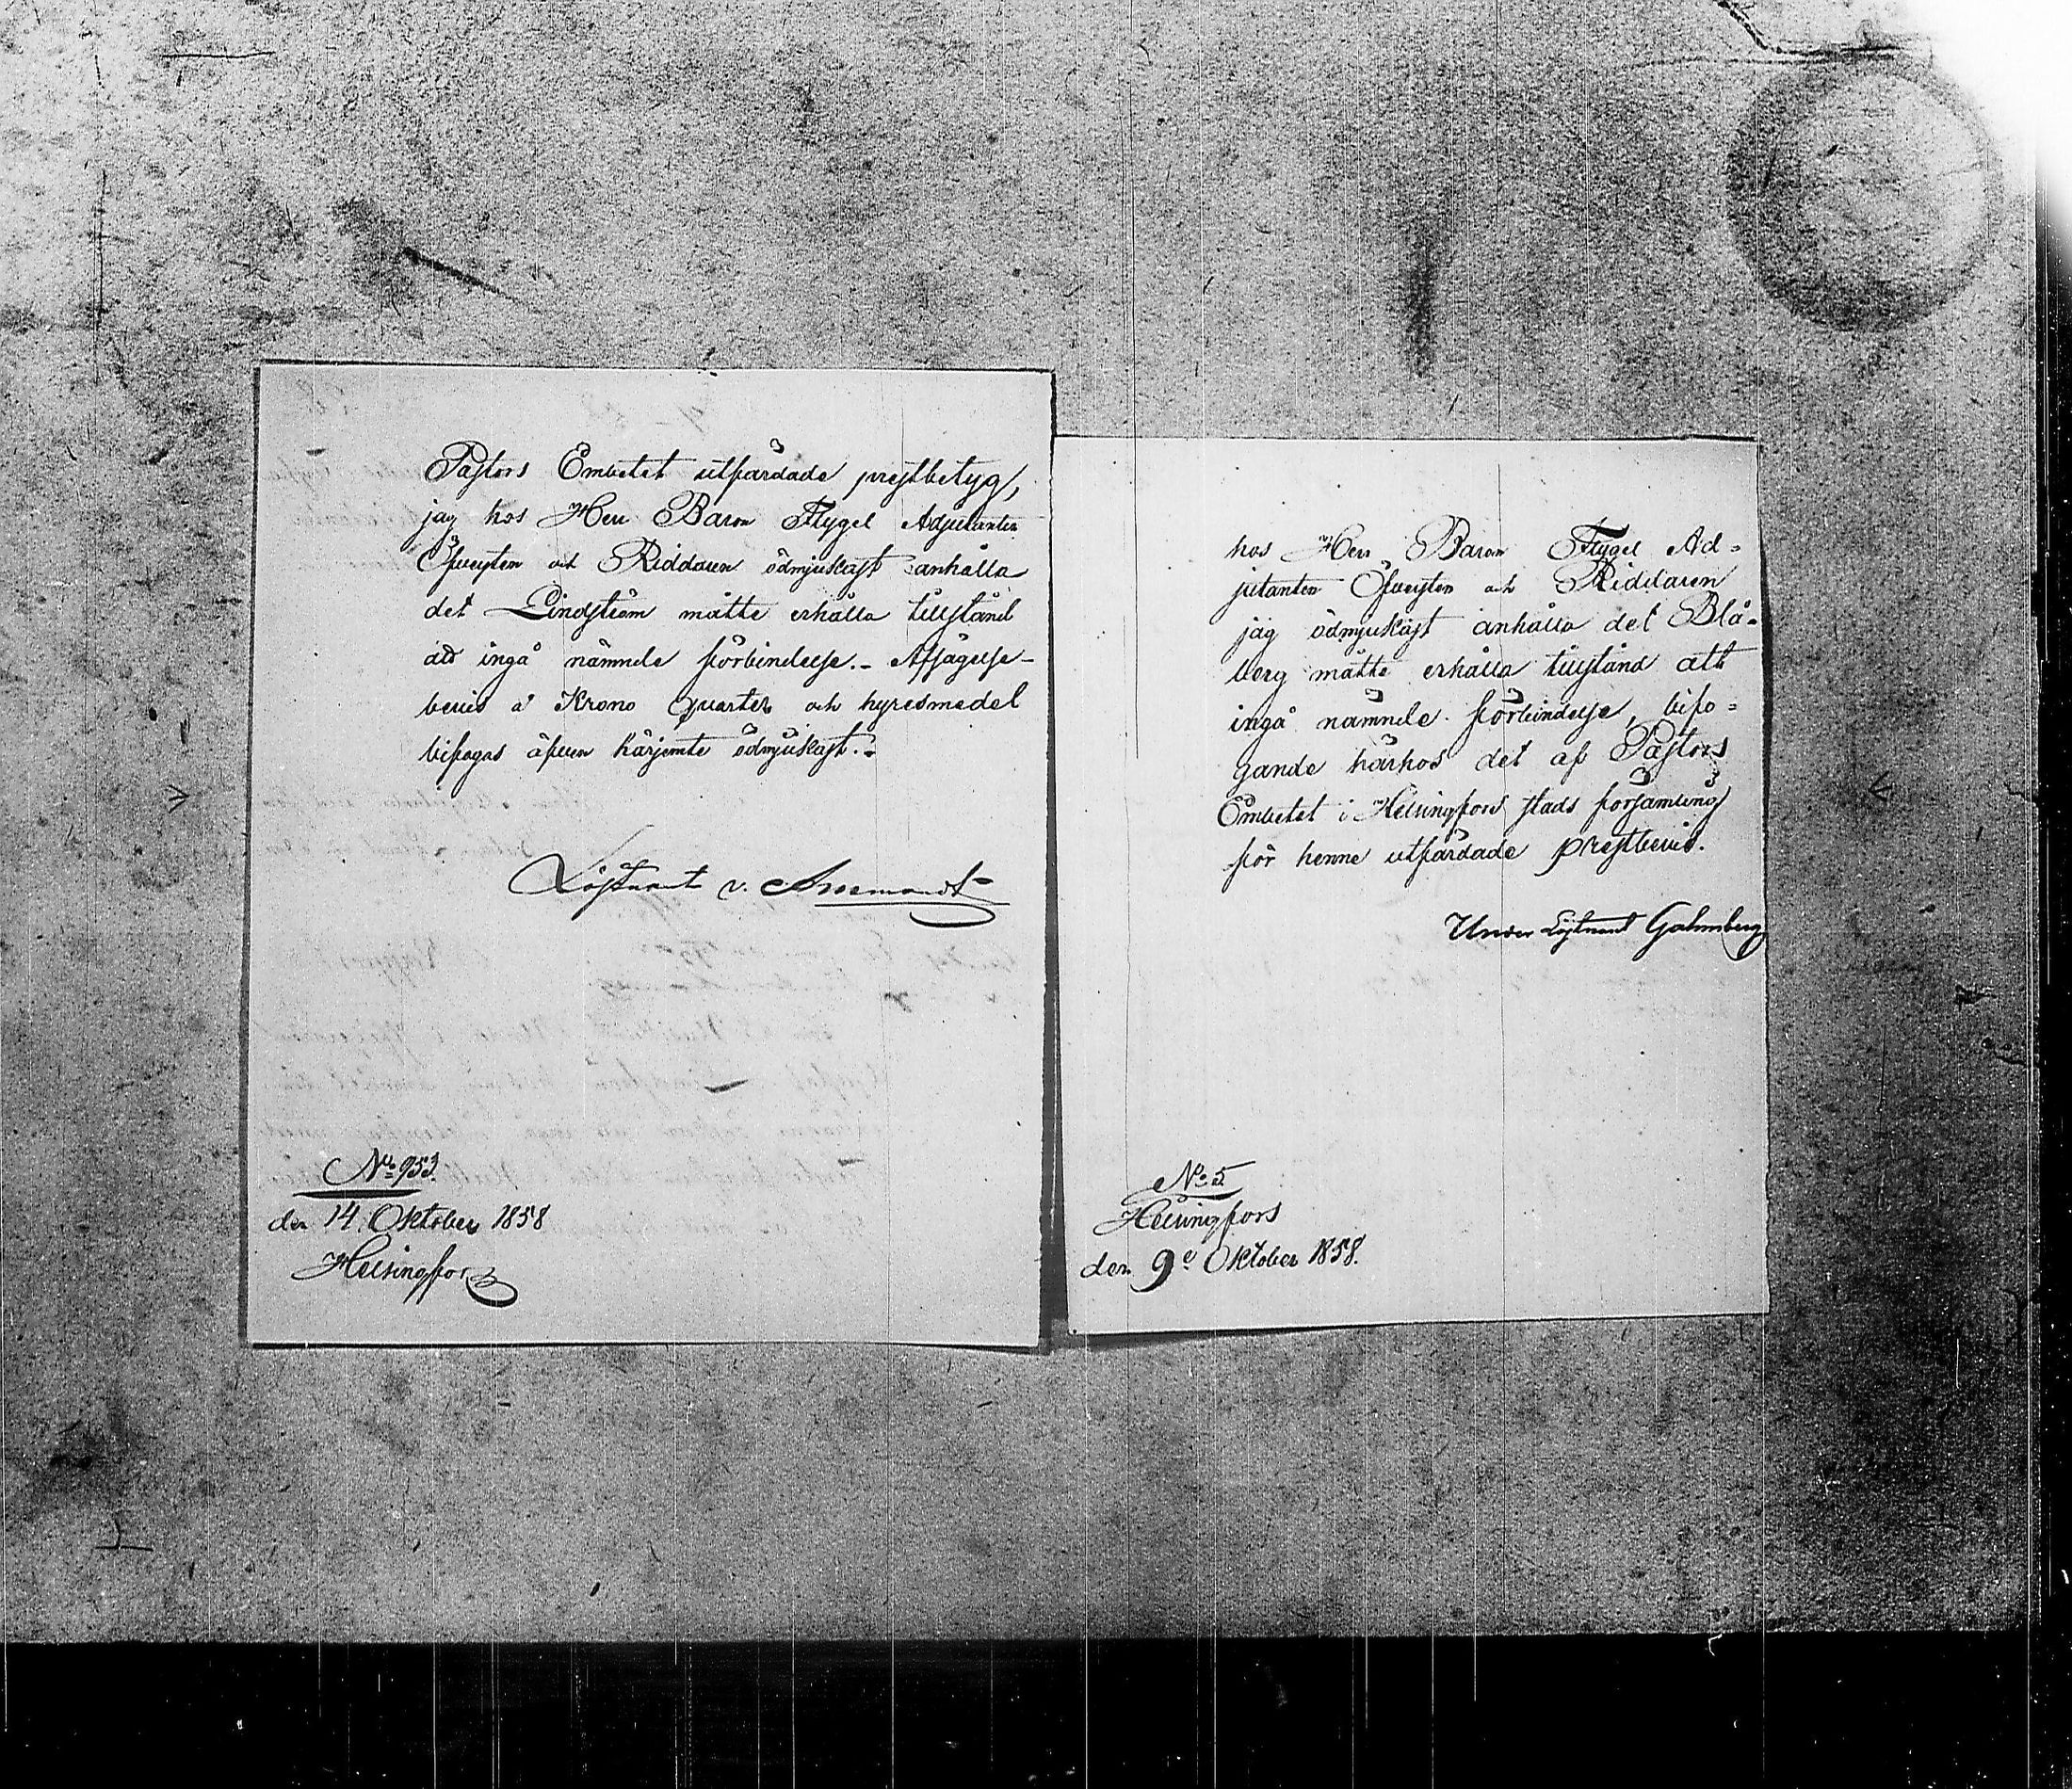 Pastors Embetet utfärdade prestbetyg,
jag hos Herr Baron Flygel Adjutanten
Öfversten och Riddaren ödmjukast anhålla
det Lindström måtte erhålla tillstånd
att ingå nämnde förbindelse. - Afsägelse-
bevis å Krono Quarter och hyresmedel
bifogas äfven härjemte ödmjukast. -
Löjtnant v.
No 953.
den 14. Oktober 1858
Helsingfors
hos Herr Baron Flygel Ad=
jutanten Öfversten och Riddaren
jag ödmjukast anhålla det Blå-
berg måtte erhålla tillstånd att
ingå nämnde förbindelse, bifo=
gande härhos det af Pastors
Embetet i Helsingfors stads församling
för henne utfärdade prestbevis.
Under Löjtnant Gahmberg
No 5
Helsingfors
den 9e Oktober 1858.